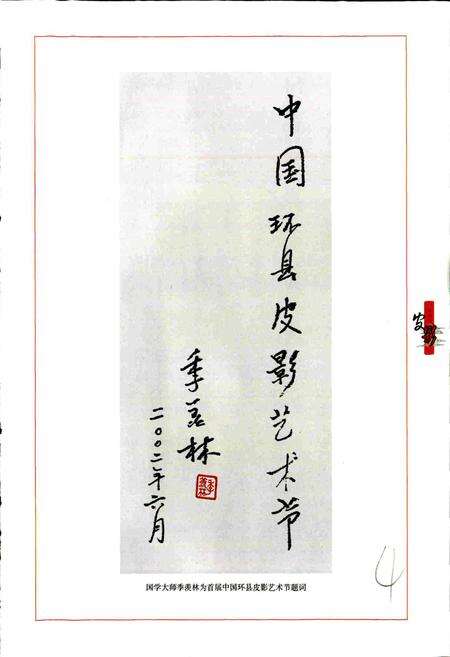 中国环县皮影艺术节
季羡林
二〇〇二年六月
皮影
国学大师季羡林为首届中国环县皮影艺术节题词
4